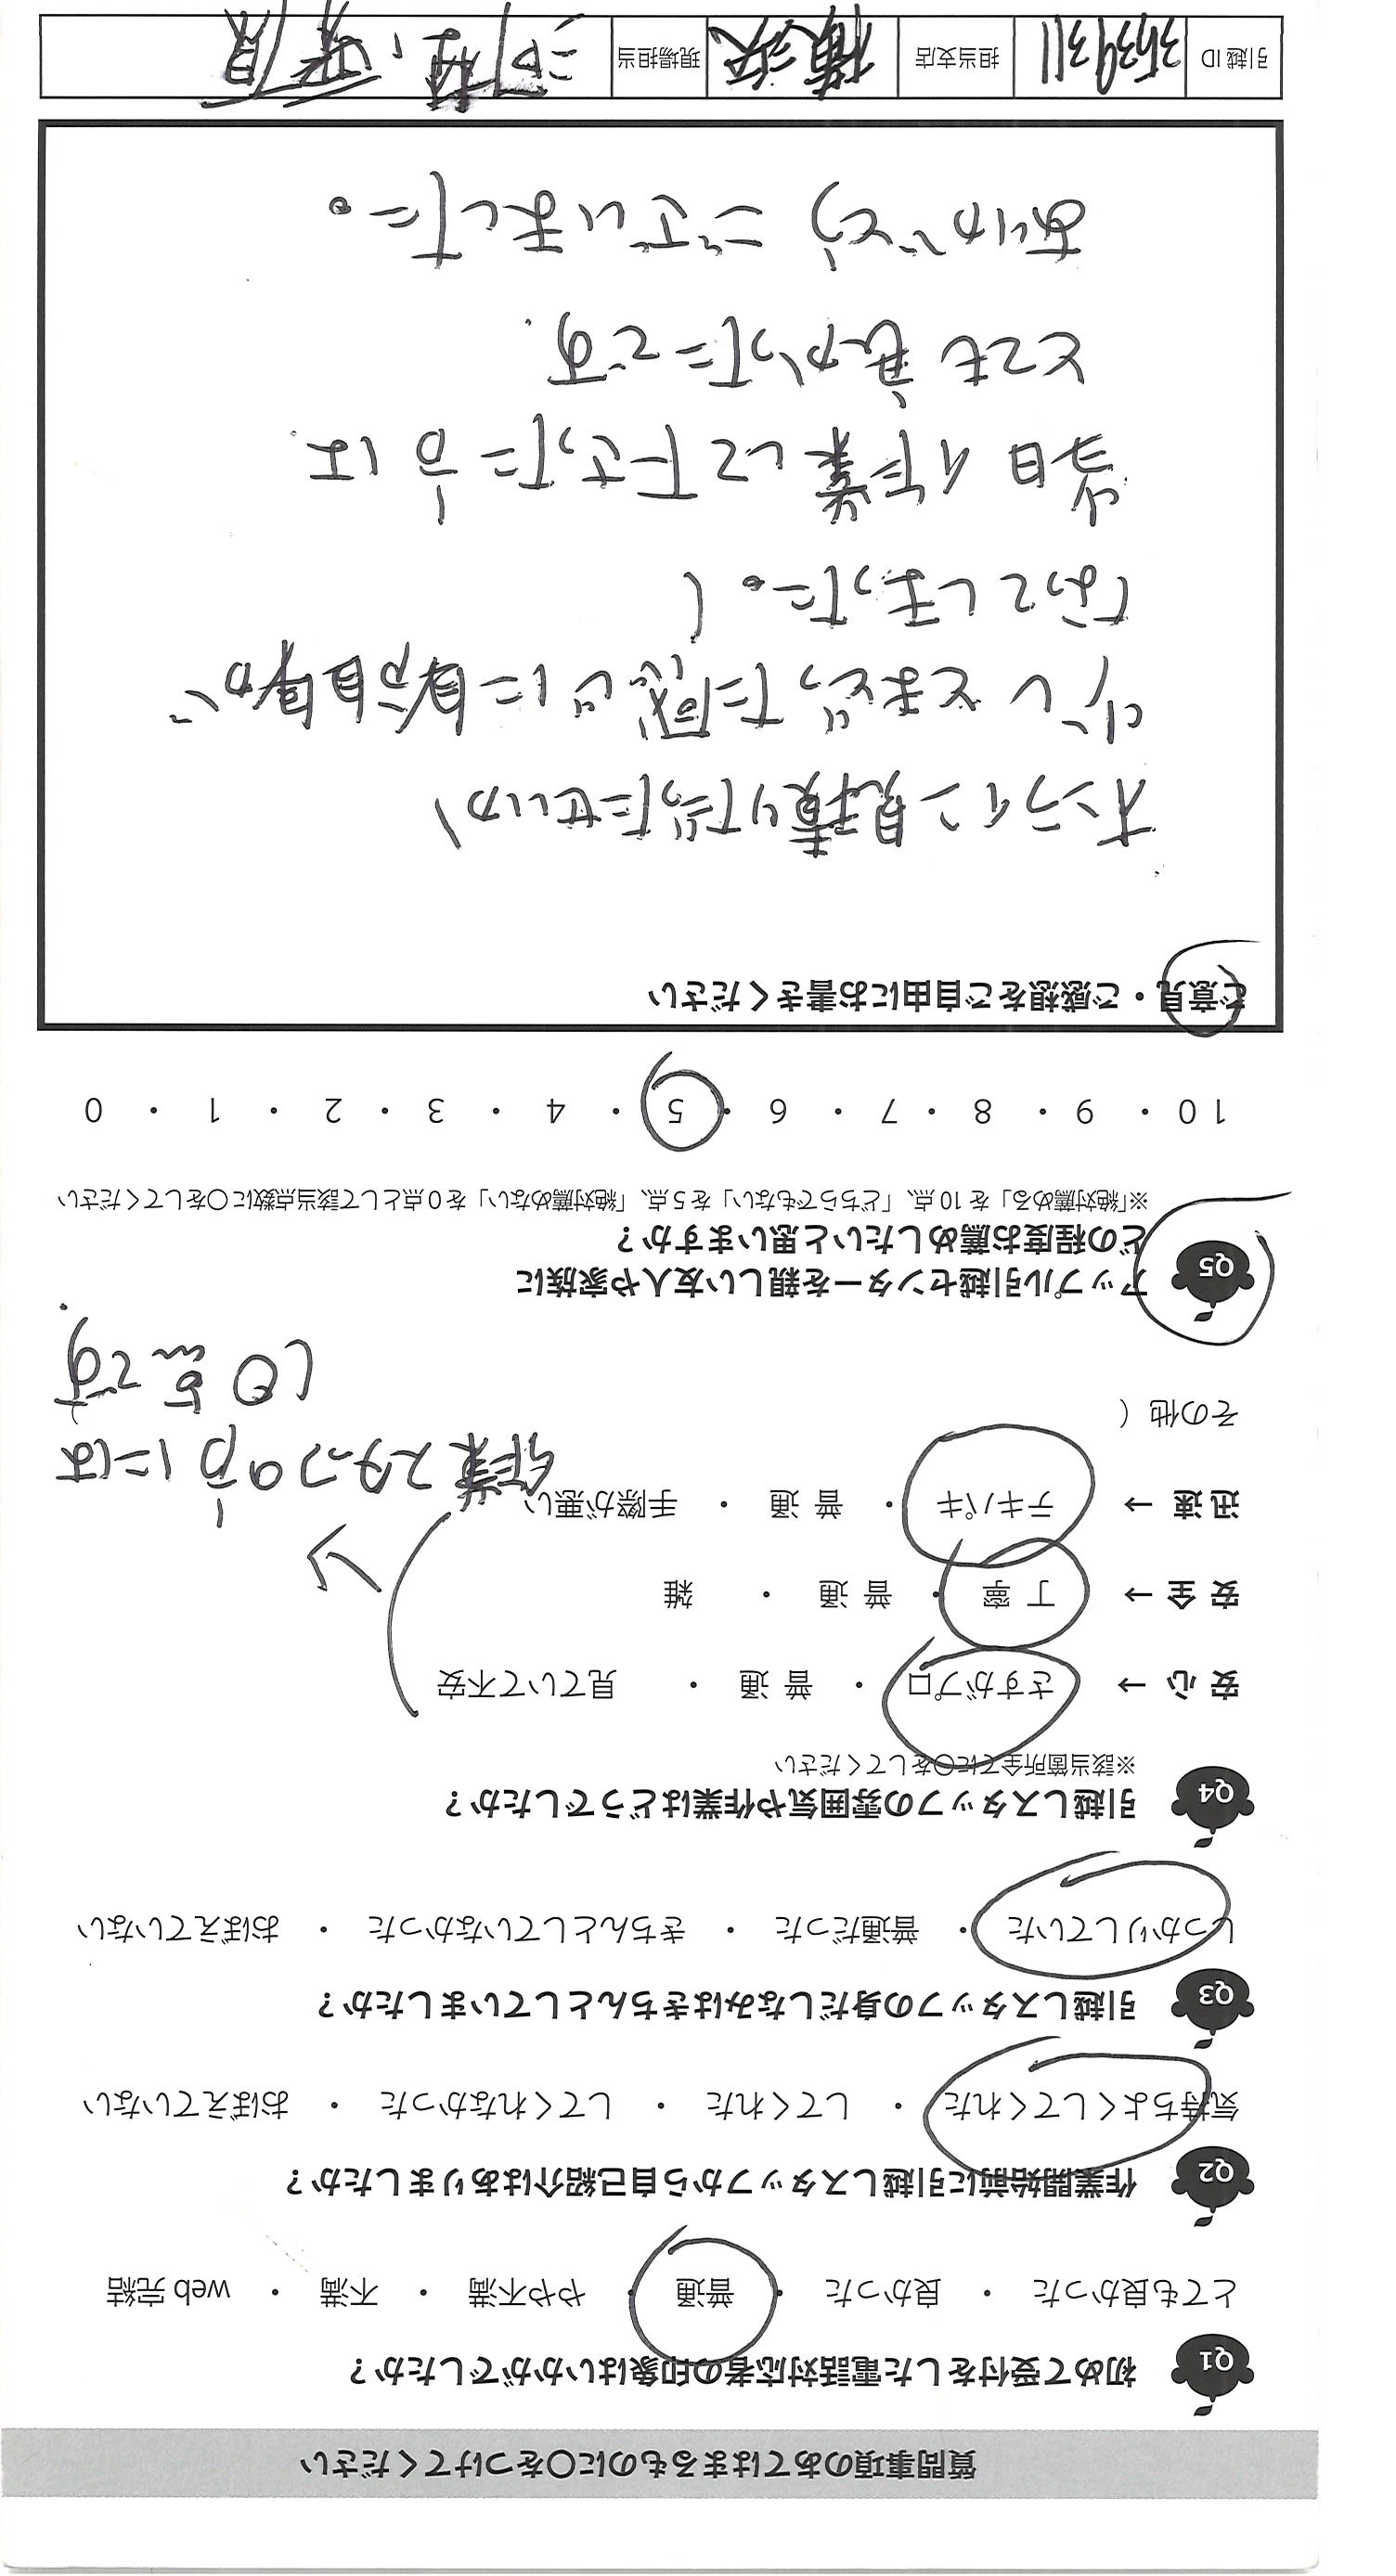 質問事項のあてはまるものに〇をつけてください
Q1 初めて受付をした電話対応者の印象はいかがでしたか？
とても良かった ・ 良かった ・ 普通 ・ やや不満 ・ 不満 ・ web 完結
Q2 作業開始前に引越しスタッフから自己紹介はありましたか？
気持ちよくしてくれた ・ してくれた ・ してくれなかった ・ おぼえていない
Q3 引越しスタッフの身だしなみはきちんとしていましたか？
しっかりしていた ・ 普通だった ・ きちんとしていなかった ・ おぼえていない
Q4 引越しスタッフの雰囲気や作業はどうでしたか？
※該当箇所全てに〇をしてください
安 心 → さすがプロ ・ 普 通 ・ 見ていて不安
安 全 → 丁 寧 ・ 普 通 ・ 雑
迅 速 → テキパキ ・ 普 通 ・ 手際が悪い
作業スタッフの方には
10点です
その他（
Q5 アップル引越センターを親しい友人や家族に
どの程度お薦めしたいと思いますか？
※「絶対薦める」を 10 点、「どちらでもない」を 5 点、「絶対薦めない」を 0 点として該当点数に〇をしてください
10 ・ 9 ・ 8 ・ 7 ・ 6 ・ 5 ・ 4 ・ 3 ・ 2 ・ 1 ・ 0
ご意見・ご感想をご自由にお書きください
オンライン見積りだったせいか
少しとまどった感じに自分自身が
なってしまった。
当日作業して下さった方は
とても良かったです.
ありがとうございました。
引越 ID 3639311 担当支店 横浜 現場担当